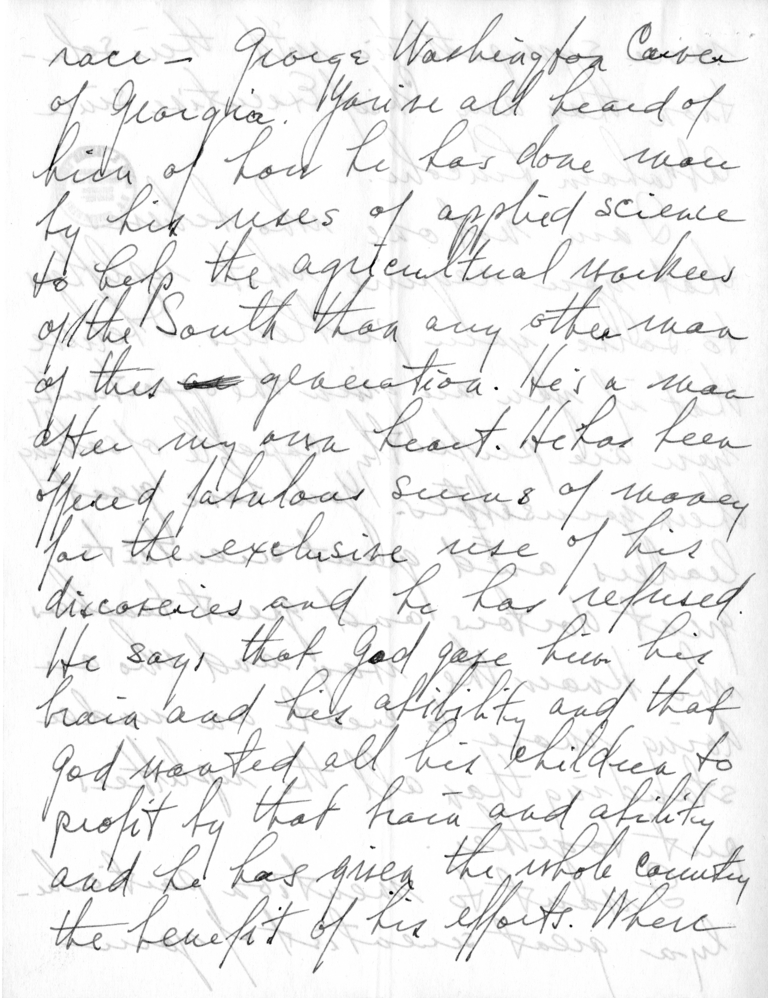 race — George Washington Carver
of Georgia. You've all heard of
him of how he has done more
by his uses of applied science
to help the agricultural workers
of the South than any other man
of this generation. He's a man
after my own heart. He has been
offered fabulous sums of money
for the exclusive use of his
discoveries and he has refused.
He says that God gave him his
brain and his abibility and that
God wanted all his children to
profit by that brain and ability
and he has given the whole country
the benefit of his efforts. When